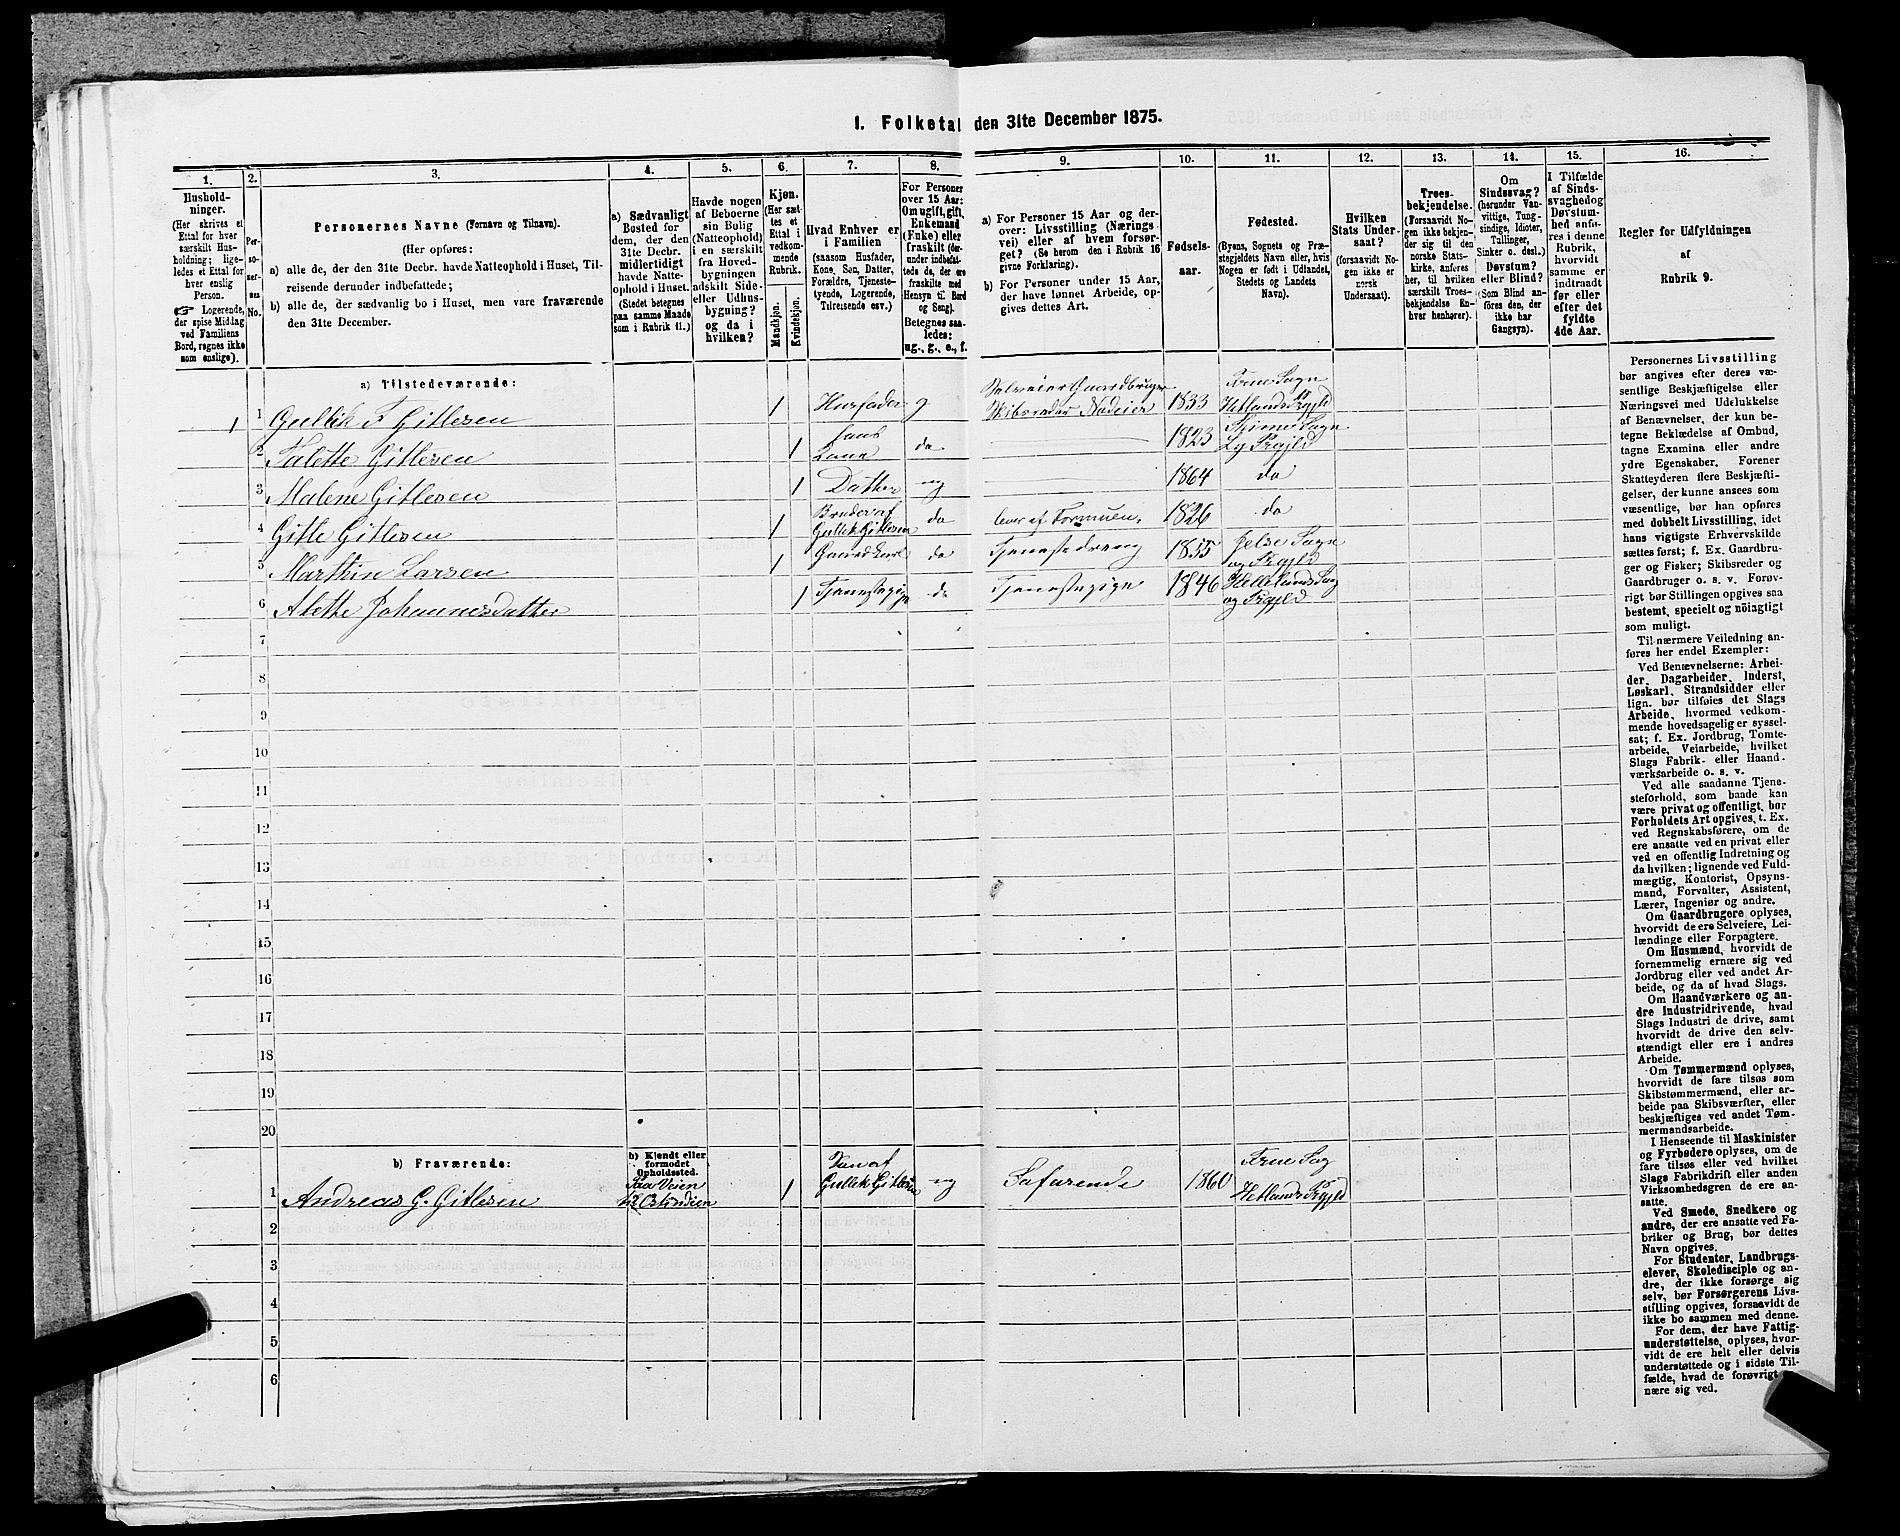 I. Folketal den 31te December 1875.
1.
Hushold-
ninger.
(Her skrives et
Ettal for hver
særskilt Hus-
holdning; lige-
ledes et Ettal for
hver enslig
Person.
☞ Logerende,
der spise Middag
ved Familiens
Bord, regnes ikke
som enslige).
2.
Per-
so-
ner-
nes
No.
3.
Personernes Navne (Fornavn og Tilnavn).
(Her opføres:
a) alle de, der den 31te Decbr. havde Natteophold i Huset, Til-
reisende derunder indbefattede;
b) alle de, der sædvanlig bo i Huset, men vare fraværende
den 31te December.
4.
a) Sædvanligt
Bosted for
dem, der den
31te Decbr.
midlertidigt
havde Natte-
ophold i Huset.
(Stedet betegnes
paa samme Maade
som i Rubrik 11.)
5.
Havde nogen
af Beboerne
sin Bolig
(Natteophold)
i en særskilt
fra Hoved-
bygningen
adskilt Side-
eller Udhus-
bygning?
og da i
hvilken?
6.
Kjøn.
(Her sæt-
tes et
Ettal i
vedkom-
mende
Rubrik.
Mandkjøn.
Kvindekjøn.
7.
Hvad Enhver er
i Familien
(saasom Husfader,
Kone, Søn, Datter,
Forældre, Tjeneste-
tyende, Logerende,
Tilreisende osv.)
8.
For Personer
over 15 Aar:
Om ugift, gift,
Enkemand
(Enke) eller
fraskilt (der-
under indbefat-
tede de, der ere
fraskilte med
Hensyn til Bord
og Seng).
Betegnes saa-
ledes:
ug., g., e., f.
9.
a) For Personer 15 Aar og der-
over: Livsstilling (Nærings-
vei) eller af hvem forsør-
get? (Se herom den i Rubrik 16
givne Forklaring).
b) For Personer under 15 Aar,
der have lønnet Arbeide, op-
gives dettes Art.
10.
Fødsels-
aar.
11.
Fødested.
(Byens, Sognets og Præ-
stegjeldets Navn eller, hvis
Nogen er født i Udlandet,
Stedets og Landets
Navn).
12.
Hvilken
Stats Under-
saat?
(forsaavidt No-
gen ikke er
norsk
Undersaat).
13.
Troes-
bekjendelse.
(Forsaavidt No-
gen ikke bekjen-
der sig til den
norske Stats-
kirke, anføres
her, til hvilken
særskilt Troes-
bekjendelse En-
hver henhører).
14.
Om
Sindssvag?
(herunder Van-
vittige, Tung-
sindige, Idioter,
Tullinger,
Sinker o. desl.)
Døvstum?
eller Blind?
(Som Blind an-
føres den, der
ikke har
Gangsyn).
15.
I Tilfælde
af Sinds-
svaghed og
Døvstum-
hed anfø-
res i denne
Rubrik,
hvorvidt
samme er
indtraadt
før eller
efter det
fyldte
4de Aar.
16.
Regler for Udfyldningen
af
Rubrik 9.
a) Tilstedeværende:
1 1 Gullik F Gitlesen 1 Husfader g. Selveier Gaardbruger Skibsreder Nodeier 1833 Torve Sogn Hetlands Prgjld
2 Talette Gitlesen 1 hans Kone do 1823 Time Sogn Ly Prgjld
3 Malene Gitlesen 1 Datter ug 1864 do
4 Gitle Gitlesen 1 Broder af Gullik Gitlesen do lever af Formuen. 1826 do
5 Marthin Larsen 1 Gaardkarl do Tjenestedreng 1855 Jelse Sogn og Prgjld
6 Alette Johannesdatter 1 Tjenestepige do Tjenestepige 1846 Hellelands Sog og Prgjld
7
8
9
10
11
12
13
14
15
16
17
18
19
20
b) Fraværende:
b) Kjendt eller
formodet
Opholdssted.
1 Andreas G. Gitlesen Paa Veien til Ostindien 1 Søn af Gullik Gitlesen ug Søfarende 1860 Sog Hetlands Prgjld
2
3
4
5
6
Personernes Livsstilling
bør angives efter deres væ-
sentlige Beskjæftigelse eller
Næringsvei med Udelukkelse
af Benævnelser, der kun be-
tegne Beklædelse af Ombud,
tagne Examina eller andre
ydre Egenskaber. Forener
Skatteyderen flere Beskjæfti-
gelser, der kunne ansees som
væsentlige, bør han opføres
med dobbelt Livsstilling, idet
hans vigtigste Erhvervskilde
sættes først; f. Ex. Gaardbru-
ger og Fisker; Skibsreder og
Gaardbruger o. s. v. Forøv-
rigt bør Stillingen opgives saa
bestemt, specielt og nöiagtigt
som muligt.
Til nærmere Veiledning an-
føres her endel Exempler:
Ved Benævnelserne: Arbei-
der, Dagarbeider, Inderst,
Løskarl, Strandsidder eller
lign. bør tilføies det Slags
Arbeide, hvormed vedkom-
mende hovedsagelig er syssel-
sat; f. Ex. Jordbrug, Tomte-
arbeide, Veiarbeide, hvilket
Slags Fabrik- eller Haand-
værksarbeide o. s. v.
Ved alle saadanne Tjene-
steforhold, som baade kan
være privat og offentligt, bør
Forholdets Art opgives, t. Ex.
ved Regnskabsførere, om de
ere ansatte ved en privat eller
ved en offentlig Indretning og
da hvilken; lignende ved Fuld-
mægtig, Kontorist, Opsyns-
mand, Forvalter, Assistent,
Lærer, Ingeniør og andre.
Om Gaardbrugere oplyses,
hvorvidt de ere Selveiere, Lei-
lændinge eller Forpagtere.
Om Husmænd, hvorvidt de
fornemmelig ernære sig ved
Jordbrug eller ved andet Ar-
beide, og da af hvad Slags.
Om Haandværkere og an-
dre Industridrivende, hvad
Slags Industri de drive, samt
hvorvidt de drive den selv-
stændigt eller ere i andres
Arbeide.
Om Tømmermænd oplyses,
hvorvidt de fare tilsøs som
Skibstømmermænd, eller ar-
beide paa Skibsværfter, eller
beskjæftiges ved andet Tøm-
mermandsarbeide.
I Henseende til Maskinister
og Fyrbødere oplyses, om de
fare tilsøs eller ved hvilket
Slags Fabrikdrift eller anden
Virksomhedsgren de ere an-
satte.
Ved Smede, Snedkere og
andre, der ere ansatte ved Fa-
briker og Brug, bør dettes
Navn opgives.
For Studenter, Landbrugs-
elever, Skoledisciple og an-
dre, der ikke forsørge sig
selv, bør Forsørgerens Livs-
stilling opgives, forsaavidt de
ikke bo sammen med denne.
For dem, der have Fattig-
understøttelse, oplyses, hvor-
vidt de ere helt eller delvis
understøttede og i sidste Til-
fælde, hvad de forøvrigt er-
nære sig ved.